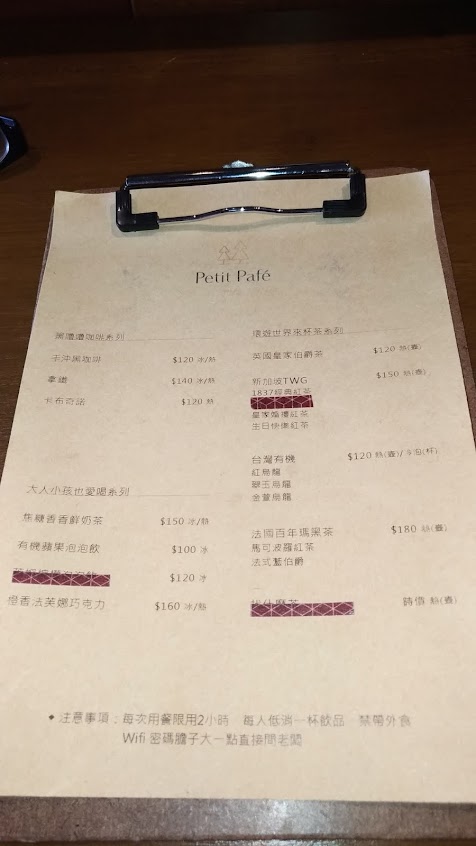 Petit Pafé
咖啡系列
手沖黑咖啡 $120 冰/熱
拿鐵 $140 冰/熱
卡布奇諾 $120 熱
大人小孩也愛喝系列
焦糖香香鮮奶茶 $150 冰/熱
有機蘋果泡泡飲 $100 冰
$120 冰
橙香法芙娜巧克力 $160 冰/熱
環遊世界來杯茶系列
英國皇家伯爵茶 $120 熱(壺)
新加坡TWG $150 熱(壺)
1837經典紅茶
皇家婚禮紅茶
生日快樂紅茶
台灣有機 $120 熱(壺)/冷泡(杯)
紅烏龍
翠玉烏龍
金萱烏龍
法國百年瑪黑茶 $180 熱(壺)
馬可波羅紅茶
法式藍伯爵
時價 熱(壺)
◆ 注意事項：每次用餐限用2小時 每人低消一杯飲品 禁帶外食
Wifi 密碼膽子大一點直接問老闆